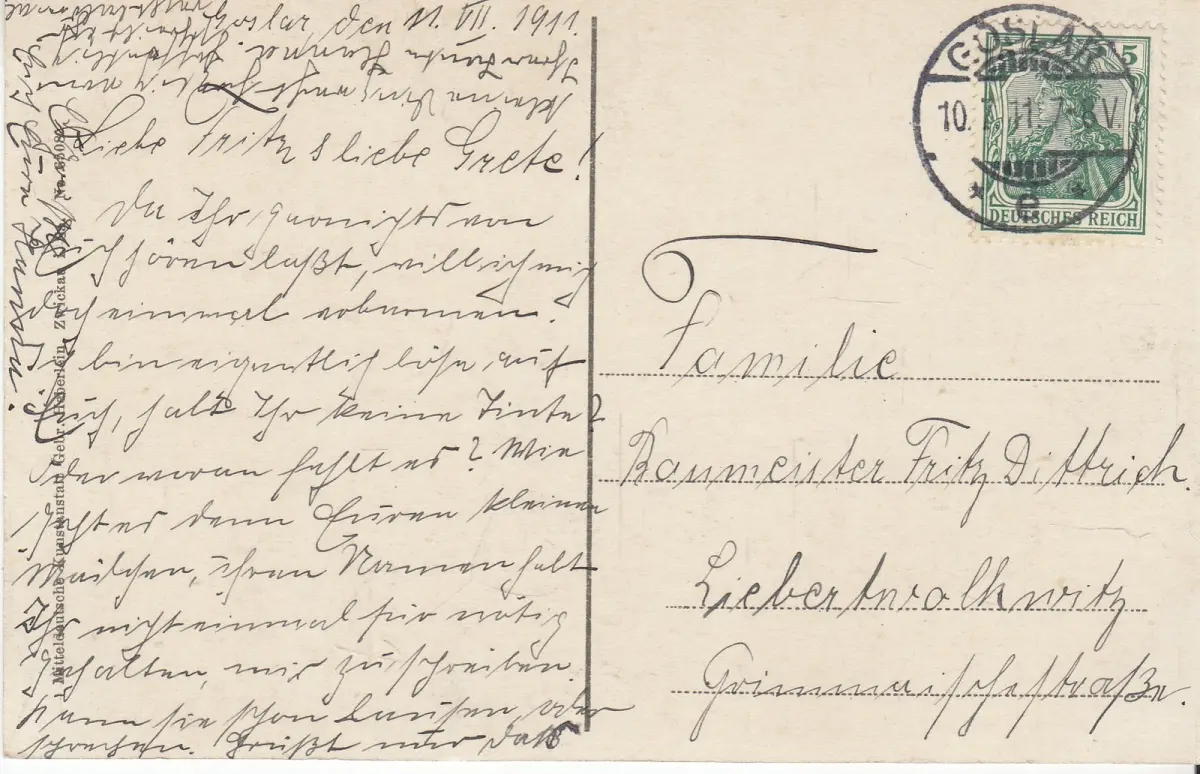 Goslar den 11. VII. 1911.
Liebe Fritz & liebe Grete!
Da Ihr garnichts von
Euch hören laßt, will ich mich
doch einmal erbarmen!
Ich bin eigentlich böse auf
Euch, habt Ihr keine Tinte?
Oder woran fehlt es? Wie
geht es denn Euren kleinen
Mädchen, ihren Namen habt
Ihr nicht einmal für nötig
gehalten, mir zu schreiben.
Kann sie schon laufen, oder
sprechen. Grüßt mir das
kleine Ding
Mitteldeutsche Kunstanstalt Gebr. Heberlein, Zwickau
GOSLAR
10. 7. 11. 7-8 V.
* e *
5
DEUTSCHES REICH
Familie
Baumeister Fritz Dittrich.
Liebertwolkwitz
Grimmaischestraße.